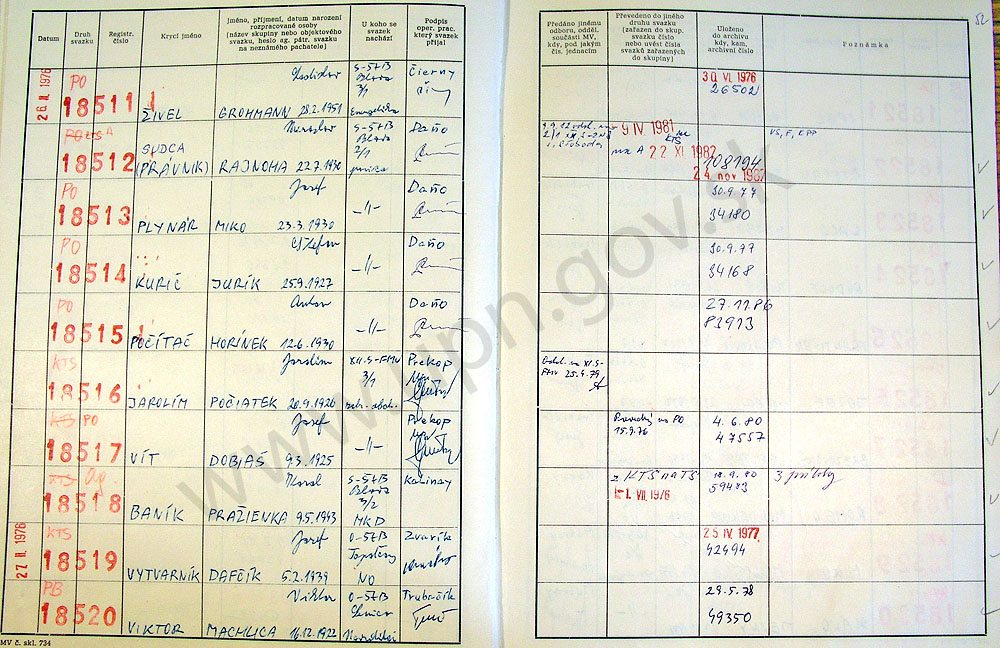 Datum
Druh
svazku
Registr.
číslo
Krycí jméno
Jméno, příjmení, datum narození
rozpracované osoby
(název skupiny nebo objektového
svazku, heslo ag. pátr. svazku
na neznámého pachatele)
U koho se
svazek
nachází
Podpis
oper. prac.
který svazek
přijal
Předáno jinému
odboru, odděl.
součásti MV,
kdy, pod jakým
čís. jednacím
Převedeno do jiného
druhu svazku
(zařazen do skup.
svazku číslo
nebo uvést čísla
svazků zařazených
do skupiny)
Uloženo
do archivu
kdy, kam,
archivní číslo
Poznámka
52
26 II. 1976
PO
18511
ŽIVEL
GROHMANN 28.2.1951
S-ŠTB
3/1
Čierny
30 VI. 1976
26502
18512
SUDCA
(PRÁVNIK)
Miroslav
RAJNOHA 22.7.1930
S-ŠTB
2/1
Daňo
9 IV. 1981
22 XI. 1982
108194
24. nov 1982
VŠ, F, KPP
PO
18513
PLYNÁR
Jozef
MIKO 23.3.1930
-"-
Daňo
30.9.77
34180
PO
18514
KURIČ
JURÍK 25.9.1927
-"-
Daňo
30.9.77
34168
PO
18515
POČÍTAČ
Anton
HORÍNEK 12.6.1930
-"-
Daňo
27.11.86
81913
KTS
18516
JAROLÍM
POČIATEK 20.9.1926
XII.S-FMV
3/1
Prekop
25.4.79
KTS PO
18517
VÍT
Jozef
DOBIAŠ 9.3.1925
-"-
Prekop
Prevedený na PO
15.9.76
4.6.80
47557
KTS Ag
18518
BANÍK
Karol
PRAŽIENKA 9.5.1943
S-ŠTB
3/2
MKD
Kalinay
z KTS na TS
-1. VII. 1976
59483
3 prílohy
27 II. 1976
KTS
18519
VYTVARNÍK
Jozef
DAFČÍK 5.2.1939
O-ŠTB
NO
Zvarík
25 IV. 1977
42494
PB
18520
VIKTOR
Viktor
MACHLICA 16.12.1922
O-ŠTB
Senica
Trubačík
29.5.78
49350
MV č. skl. 734
www.upn.gov.sk